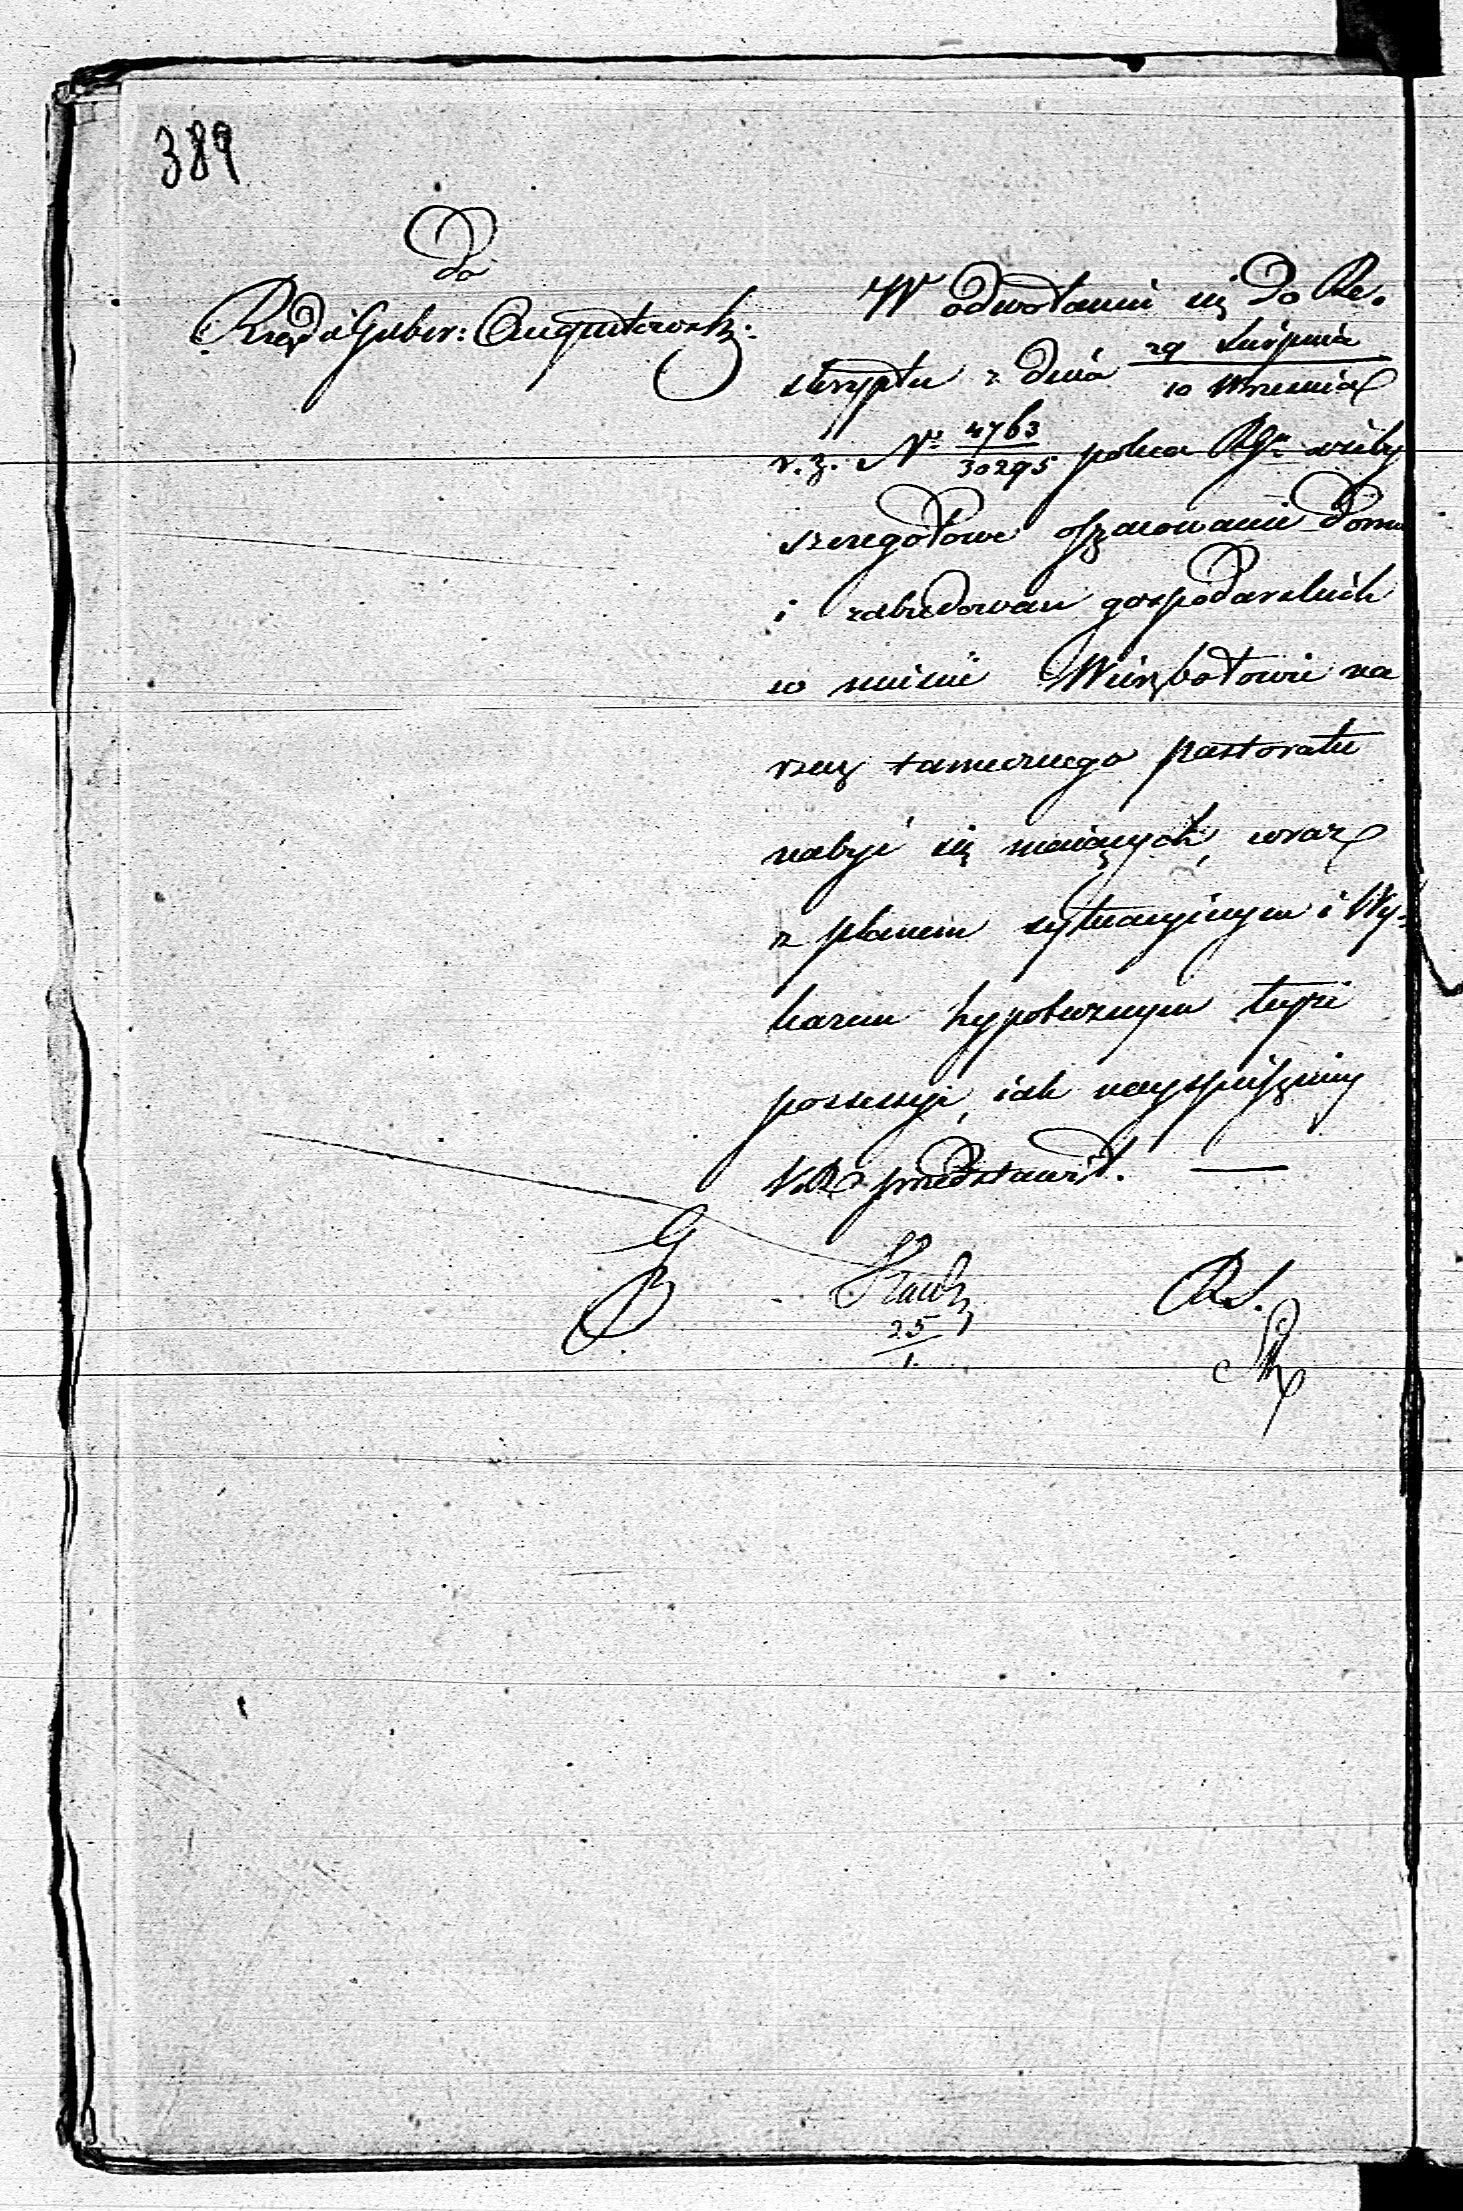 389
Do
Rządu Guber: Augustowsk:
W odwołaniu się do Re-
skryptu z dnia 29 Sierpnia / 10 Września
r. z. N° 4763 / 30295 poleca RGu ażeby
szczegołowe oszacowanie Domu
i zabudowań gospodarskich
w mieście Wierzbołowie na
rzecz tamecznego pastoratu
nabyć się maiących, wraz
z planem sytuacyjnym i Wy-
kazem hypotecznym teyże
possessyi, iak nayspieszniey
KR przedstawił. —
25 / 1.